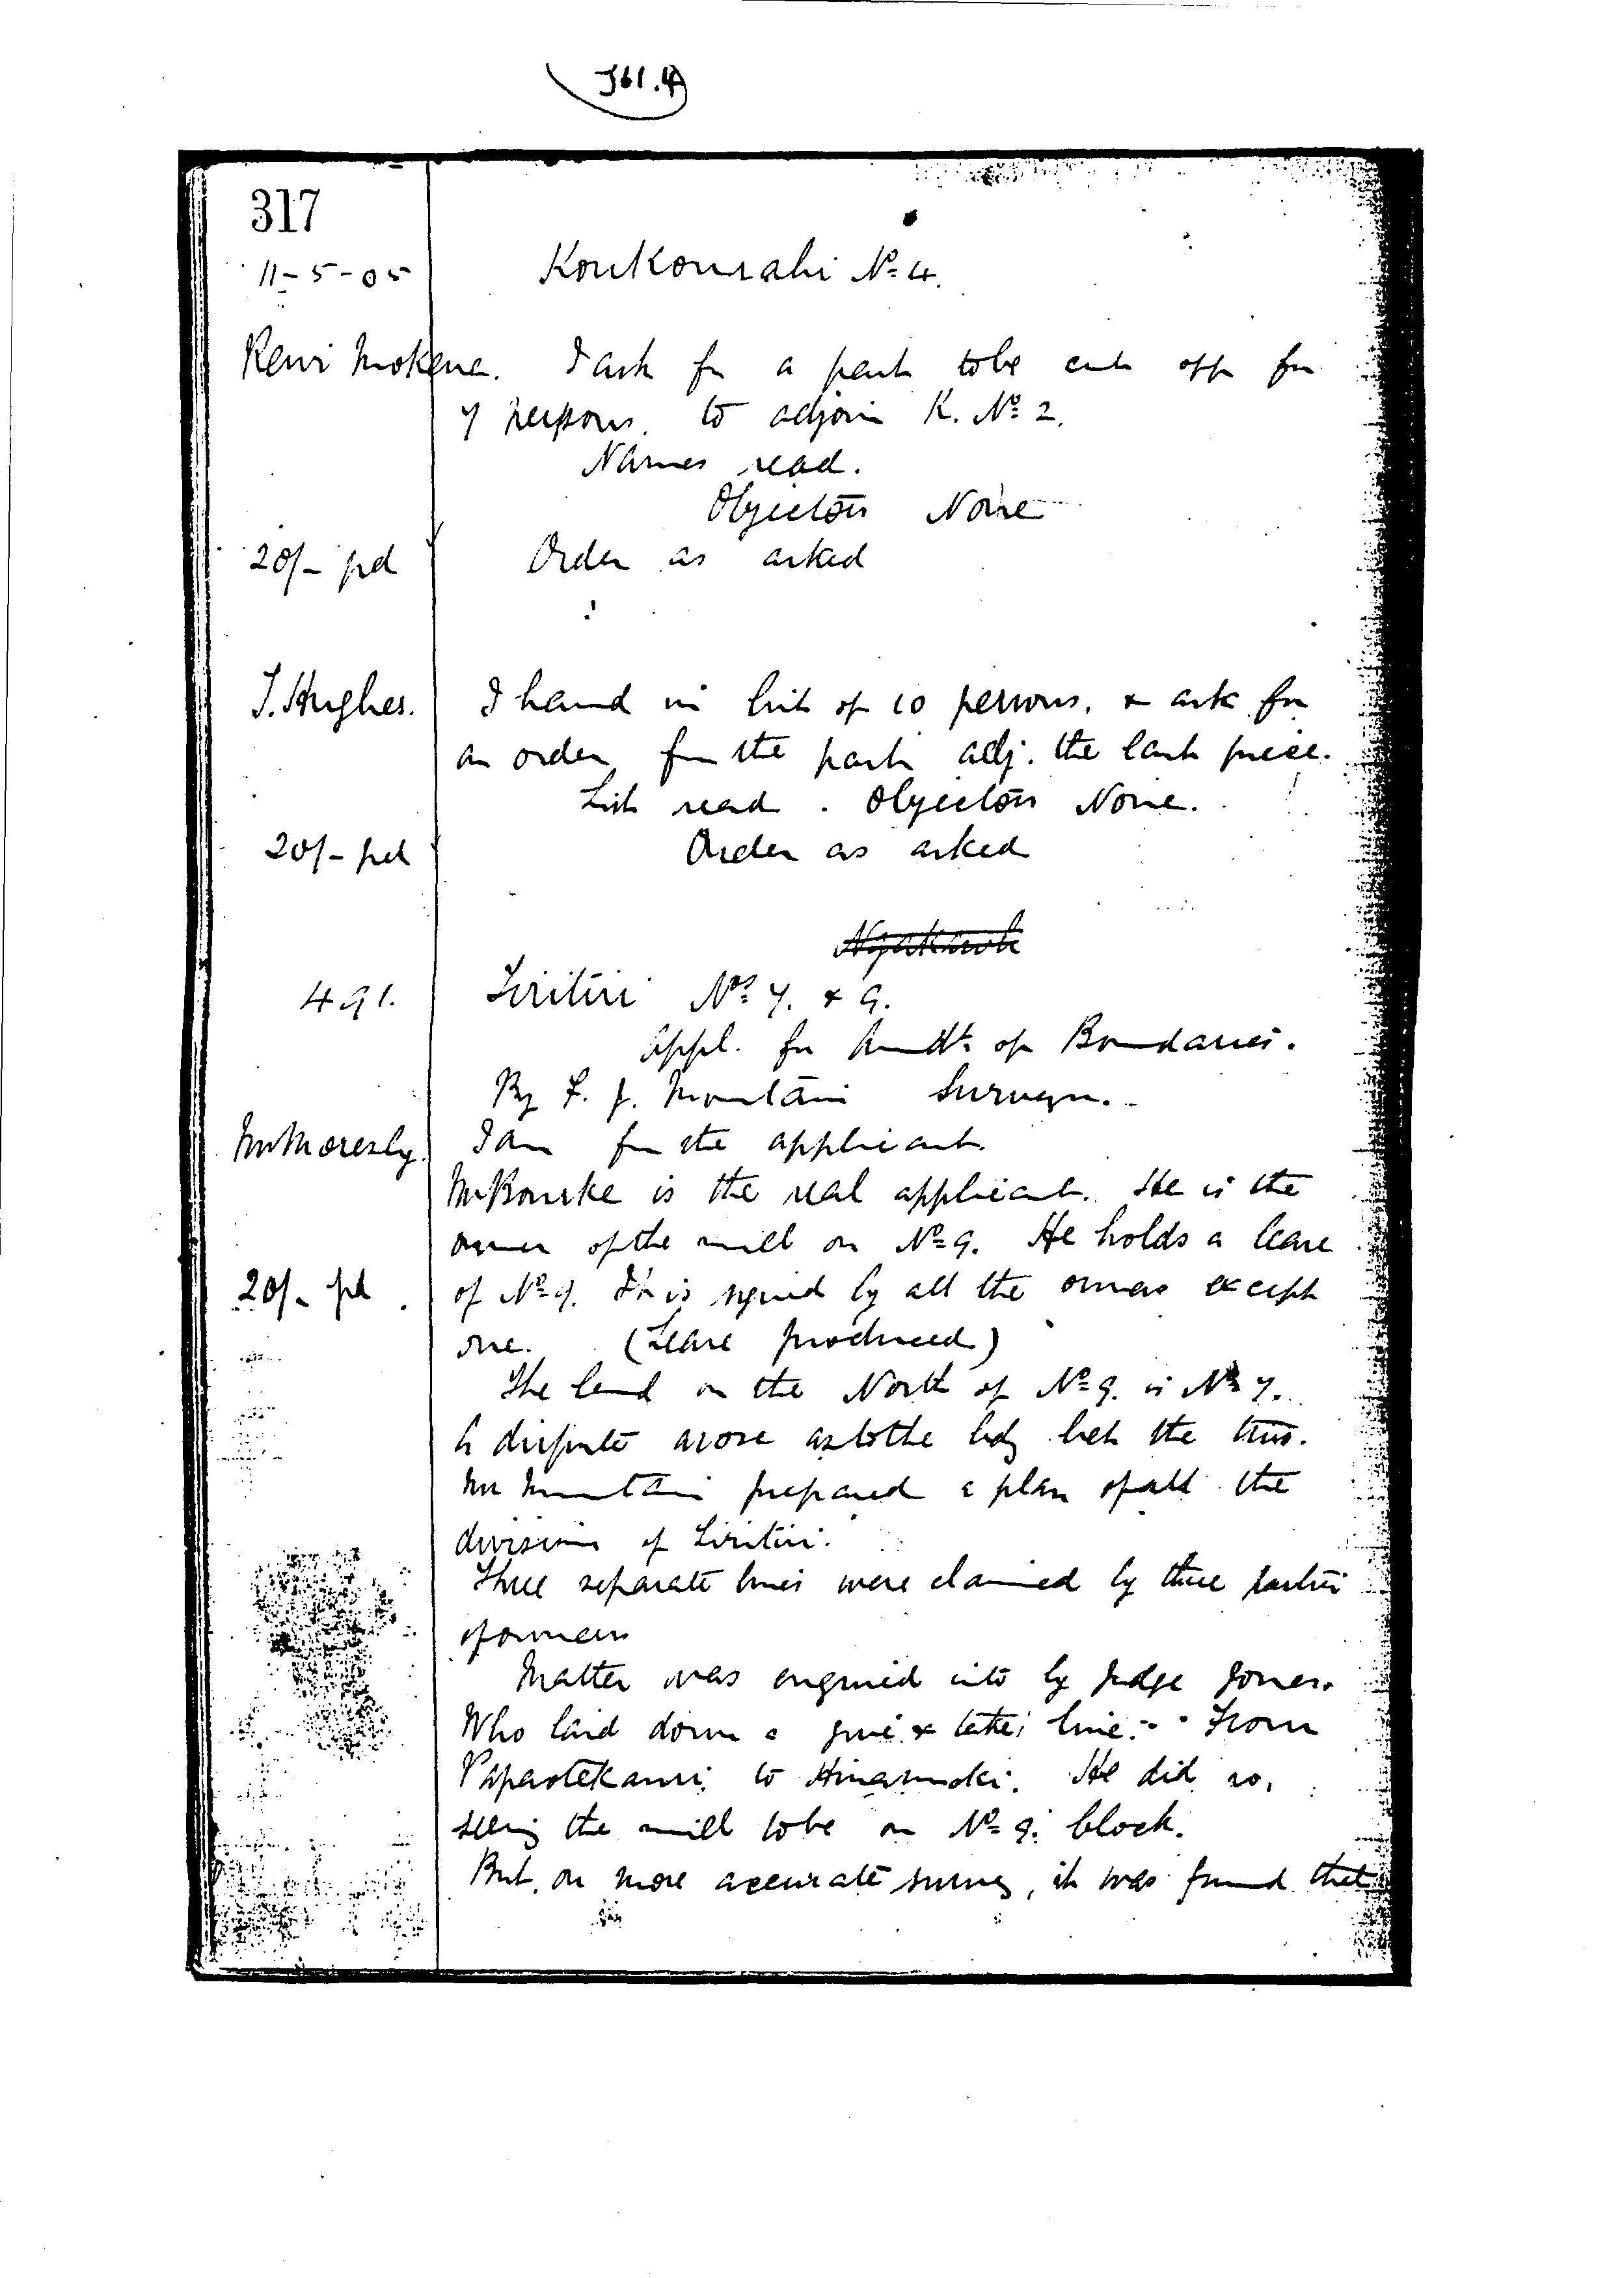 J61.4
317
11-5-05
Koukourahi No 4.
Rewi Mokena. I ask for a part to be cut off for
7 persons. to adjoin K. No 2.
Names read.
Objectors None
20/- pd Order as asked
J. Hughes. I hand in list of 10 persons, & ask for
an order for the part adj. the last piece.
List read. Objectors None.
20/- pd Order as asked
491. Tiritiri Nos 7. & 9.
Appl. for Amdt. of Boundaries.
By F. J. Mountain Surveyor.
Mr Moresby. I am for the applicant.
Mr Bourke is the real applicant. He is the
owner of the mill on No 9. He holds a lease
20/- pd of No 9. It is signed by all the owners except
one. (Lease produced)
The land on the North of No 9. is No 7.
A dispute arose as to the bdy bet. the two.
Mr Mountain prepared a plan of all the
divisions of Tiritiri.
Three separate lines were claimed by three parties
of owners
Matter was enquired into by Judge Jones.
Who laid down a give & take line:- From
Papaotekauri to Hinamoki. He did so,
seeing the mill to be on No 9. block.
But, on more accurate survey, it was found that